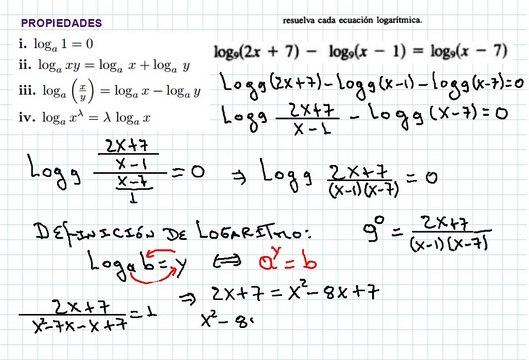 PROPIEDADES
i. logₐ 1 = 0
ii. logₐ xy = logₐ x + logₐ y
iii. logₐ (x/y) = logₐ x − logₐ y
iv. logₐ x^λ = λ logₐ x
resuelva cada ecuación logarítmica.
log₉(2x + 7) − log₉(x − 1) = log₉(x − 7)
Log₉(2x+7) − log₉(x−1) − log₉(x−7) = 0
Log₉ (2x+7)/(x−1) − Log₉(x−7) = 0
Log₉ ((2x+7)/(x−1))/((x−7)/1) = 0 ⇒ Log₉ (2x+7)/((x−1)(x−7)) = 0
DEFINICIÓN DE LOGARITMO: 9⁰ = (2x+7)/((x−1)(x−7))
Logₐb = y ⇔ a^y = b
(2x+7)/(x²−7x−x+7) = 1 ⇒ 2x+7 = x²−8x+7
x²−8